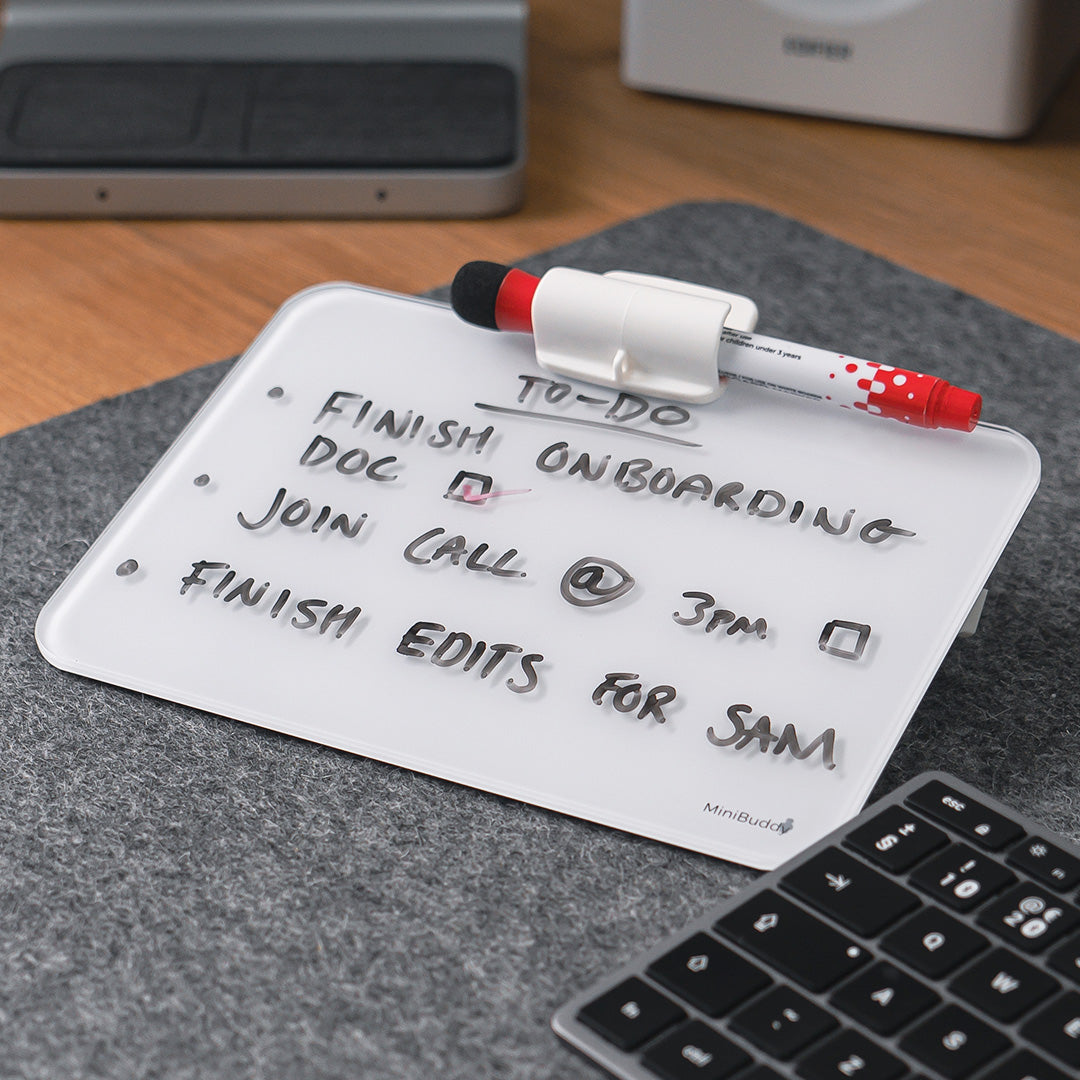 TO-DO
• FINISH ONBOARDING
DOC ☑
• JOIN CALL @ 3PM ☐
• FINISH EDITS FOR SAM
MiniBuddy
children under 3 years
esc
§ ±
! 1
@ € 2
Q
W
A
S
Z
fn
ctrl